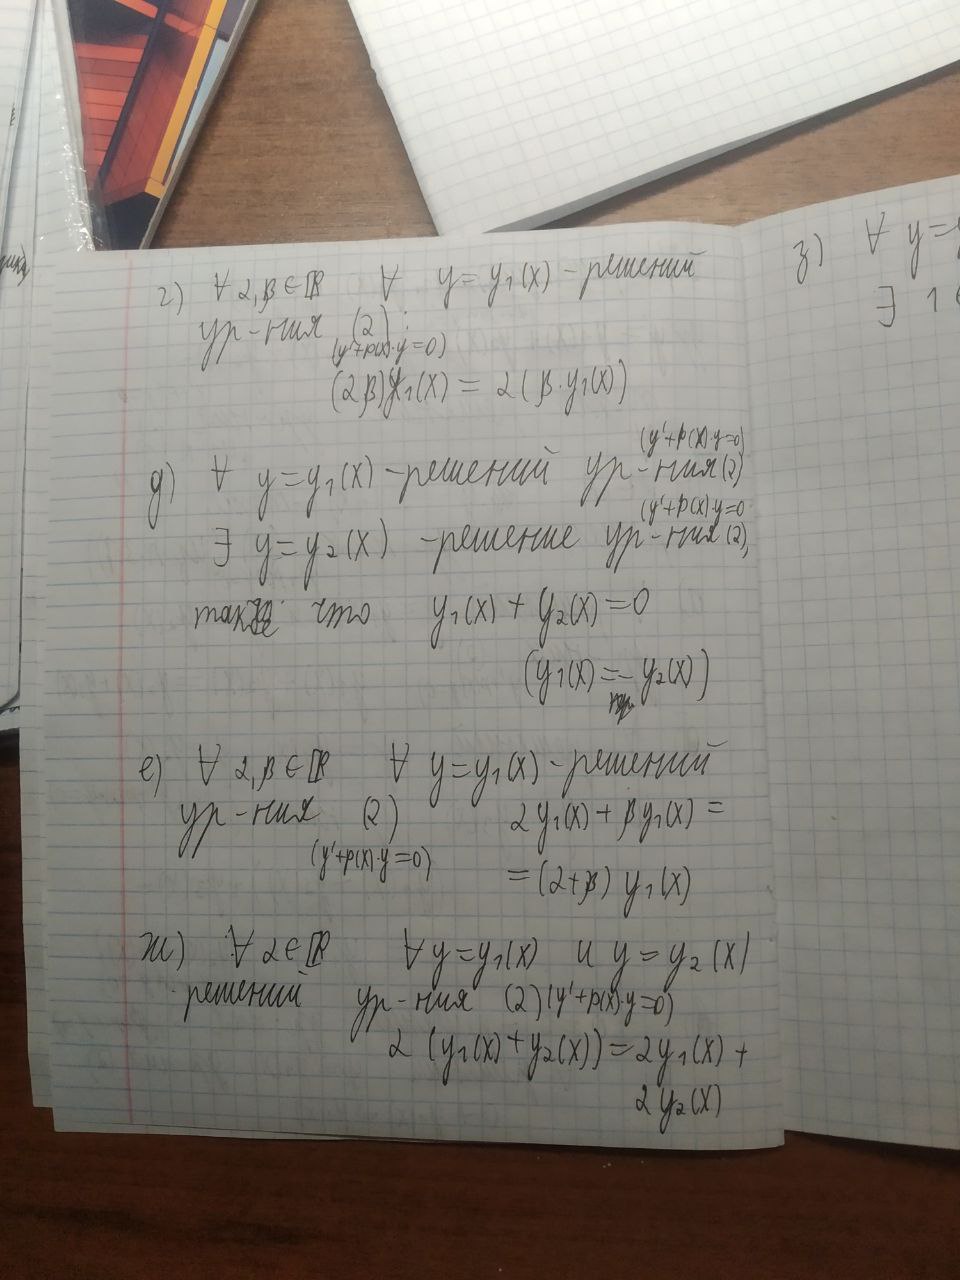 г) ∀ α, β ∈ ℝ ∀ y = y₁(x) - решений
ур-ния (2) :
(y'+p(x)·y=0)
(αβ)y₁(x) = α(β·y₁(x))
(y'+p(x)·y=0)
д) ∀ y=y₁(x) - решений ур-ния(2)
(y'+p(x)·y=0
∃ y=y₂(x) - решение ур-ния(2),
такое что y₁(x) + y₂(x)=0
(y₁(x) = - y₂(x))
е) ∀ α, β ∈ ℝ ∀ y=y₁(x) - решений
ур-ния (2) αy₁(x) + βy₁(x) =
(y'+p(x)·y=0) = (α+β) y₁(x)
ж) ∀ α ∈ ℝ ∀ y=y₁(x) и y = y₂(x)
решений ур-ния (2) (y'+p(x)·y=0)
α (y₁(x) + y₂(x)) = αy₁(x) +
αy₂(x)
з) ∀ y=
∃ 1